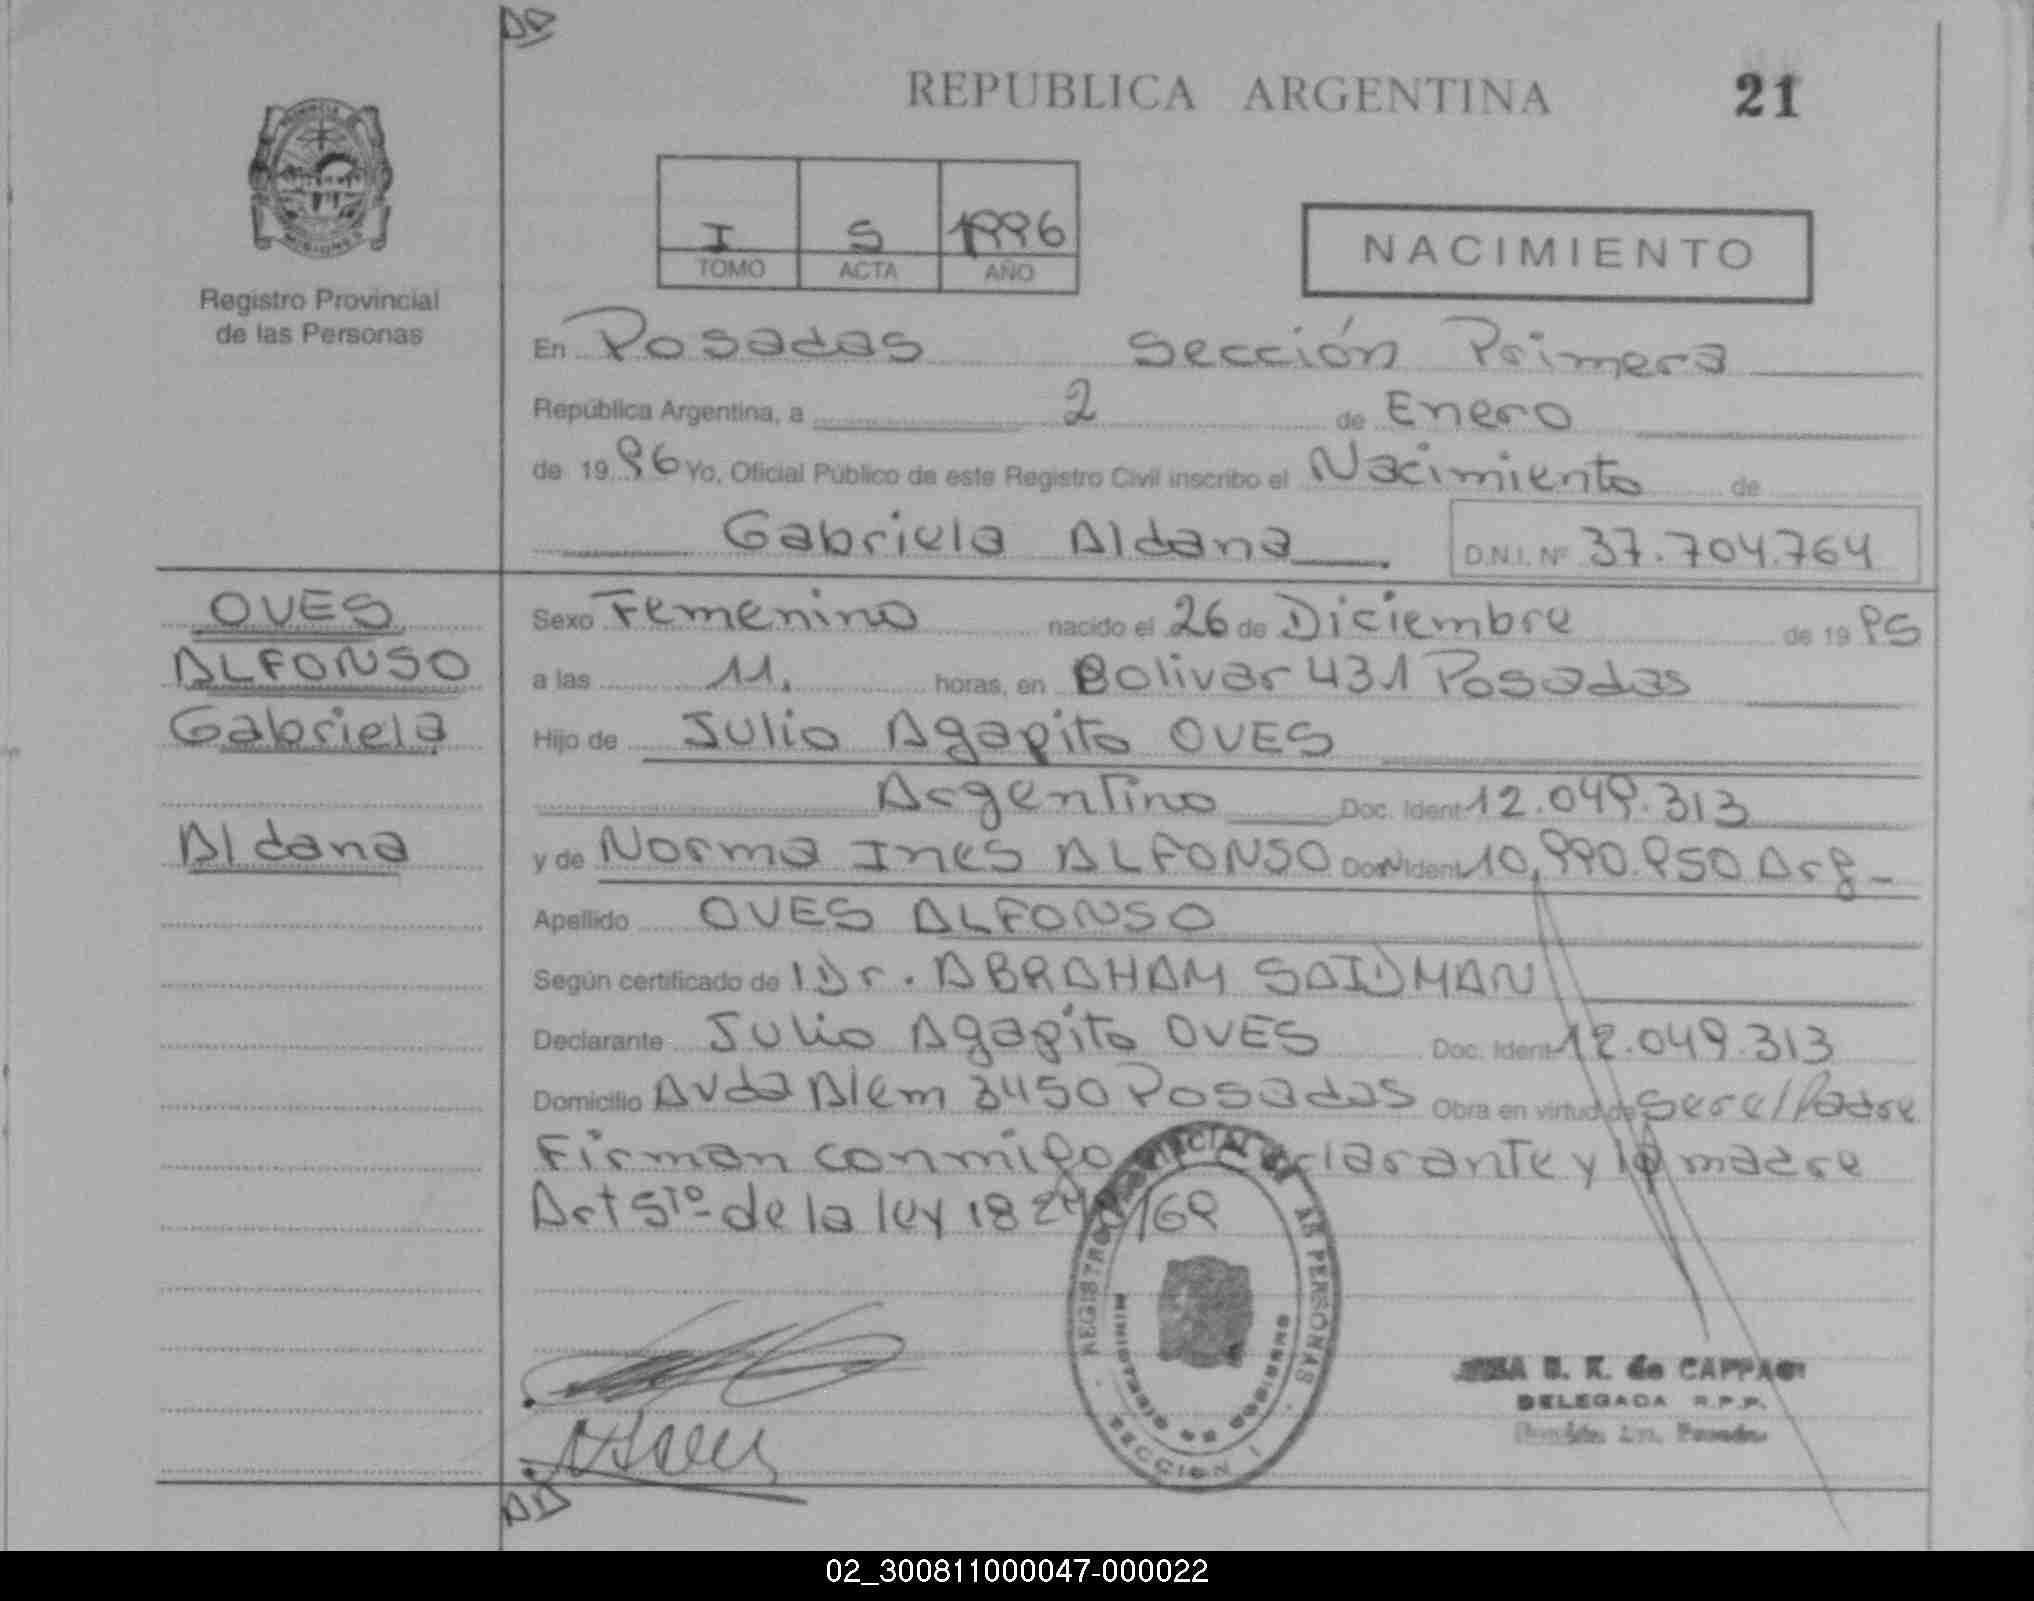 REPUBLICA ARGENTINA 21
PROVINCIA
MISIONES
Registro Provincial
de las Personas
I 5 1996
TOMO ACTA AÑO
NACIMIENTO
En Posadas Sección Primera
República Argentina, a 2 de Enero
de 19 96 Yo, Oficial Público de este Registro Civil inscribo el Nacimiento de
Gabriela Aldana D.N.I. Nº 37.704.764
OVES
ALFONSO
Gabriela
Aldana
Sexo Femenino nacido el 26 de Diciembre de 19 95
a las 11. horas, en Bolivar 431 Posadas
Hijo de Julio Agapito OVES
Argentino Doc. Ident 12.049.313
y de Norma Ines ALFONSO Doc. Ident 10,990.950 Arg-
Apellido OVES ALFONSO
Según certificado de Dr. ABRAHAM SAIDMAN
Declarante Julio Agapito OVES Doc. Ident 12.049.313
Domicilio Avda Alem 3450 Posadas Obra en virtud de ser el Padre
Firman conmigo declarante y la madre
Art 5to de la ley 18 /69
REGISTRO PROVINCIAL DE LAS PERSONAS
MINISTERIO DE GOBIERNO
SECCION I
B. K. de CAPPAGI
DELEGADA R.P.P.
02_300811000047-000022